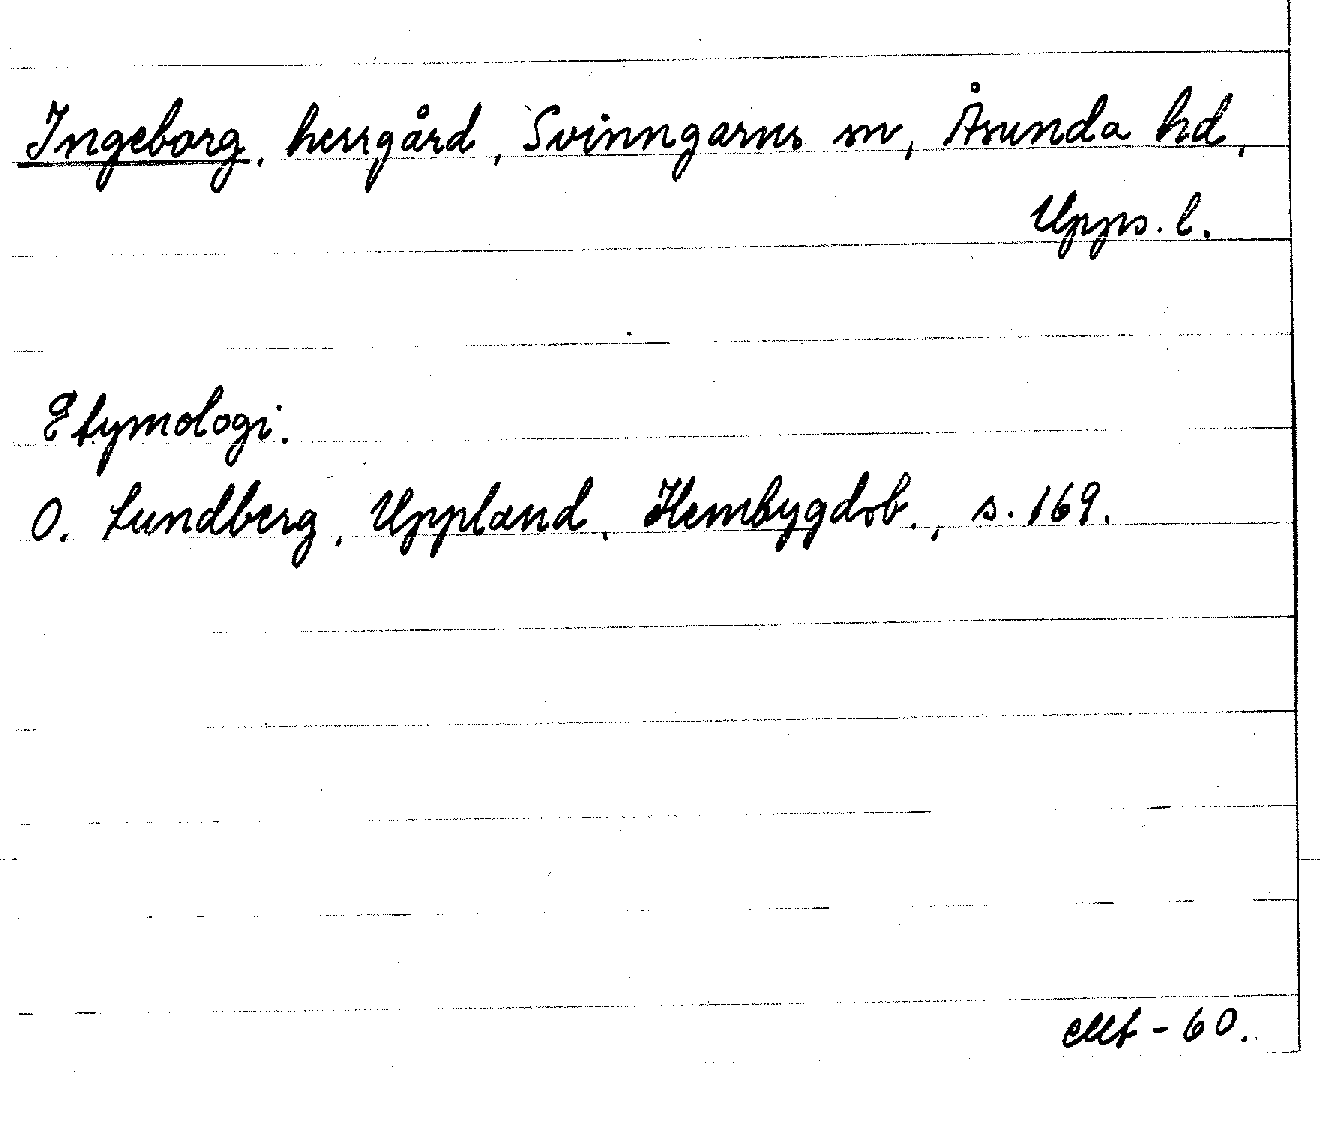 Ingeborg, herrgård, Svinngarns sn, Åsunda hd,
Upps. l.
Etymologi.
O. Lundberg, Uppland, Hembygdsb., s. 169.
- 60.